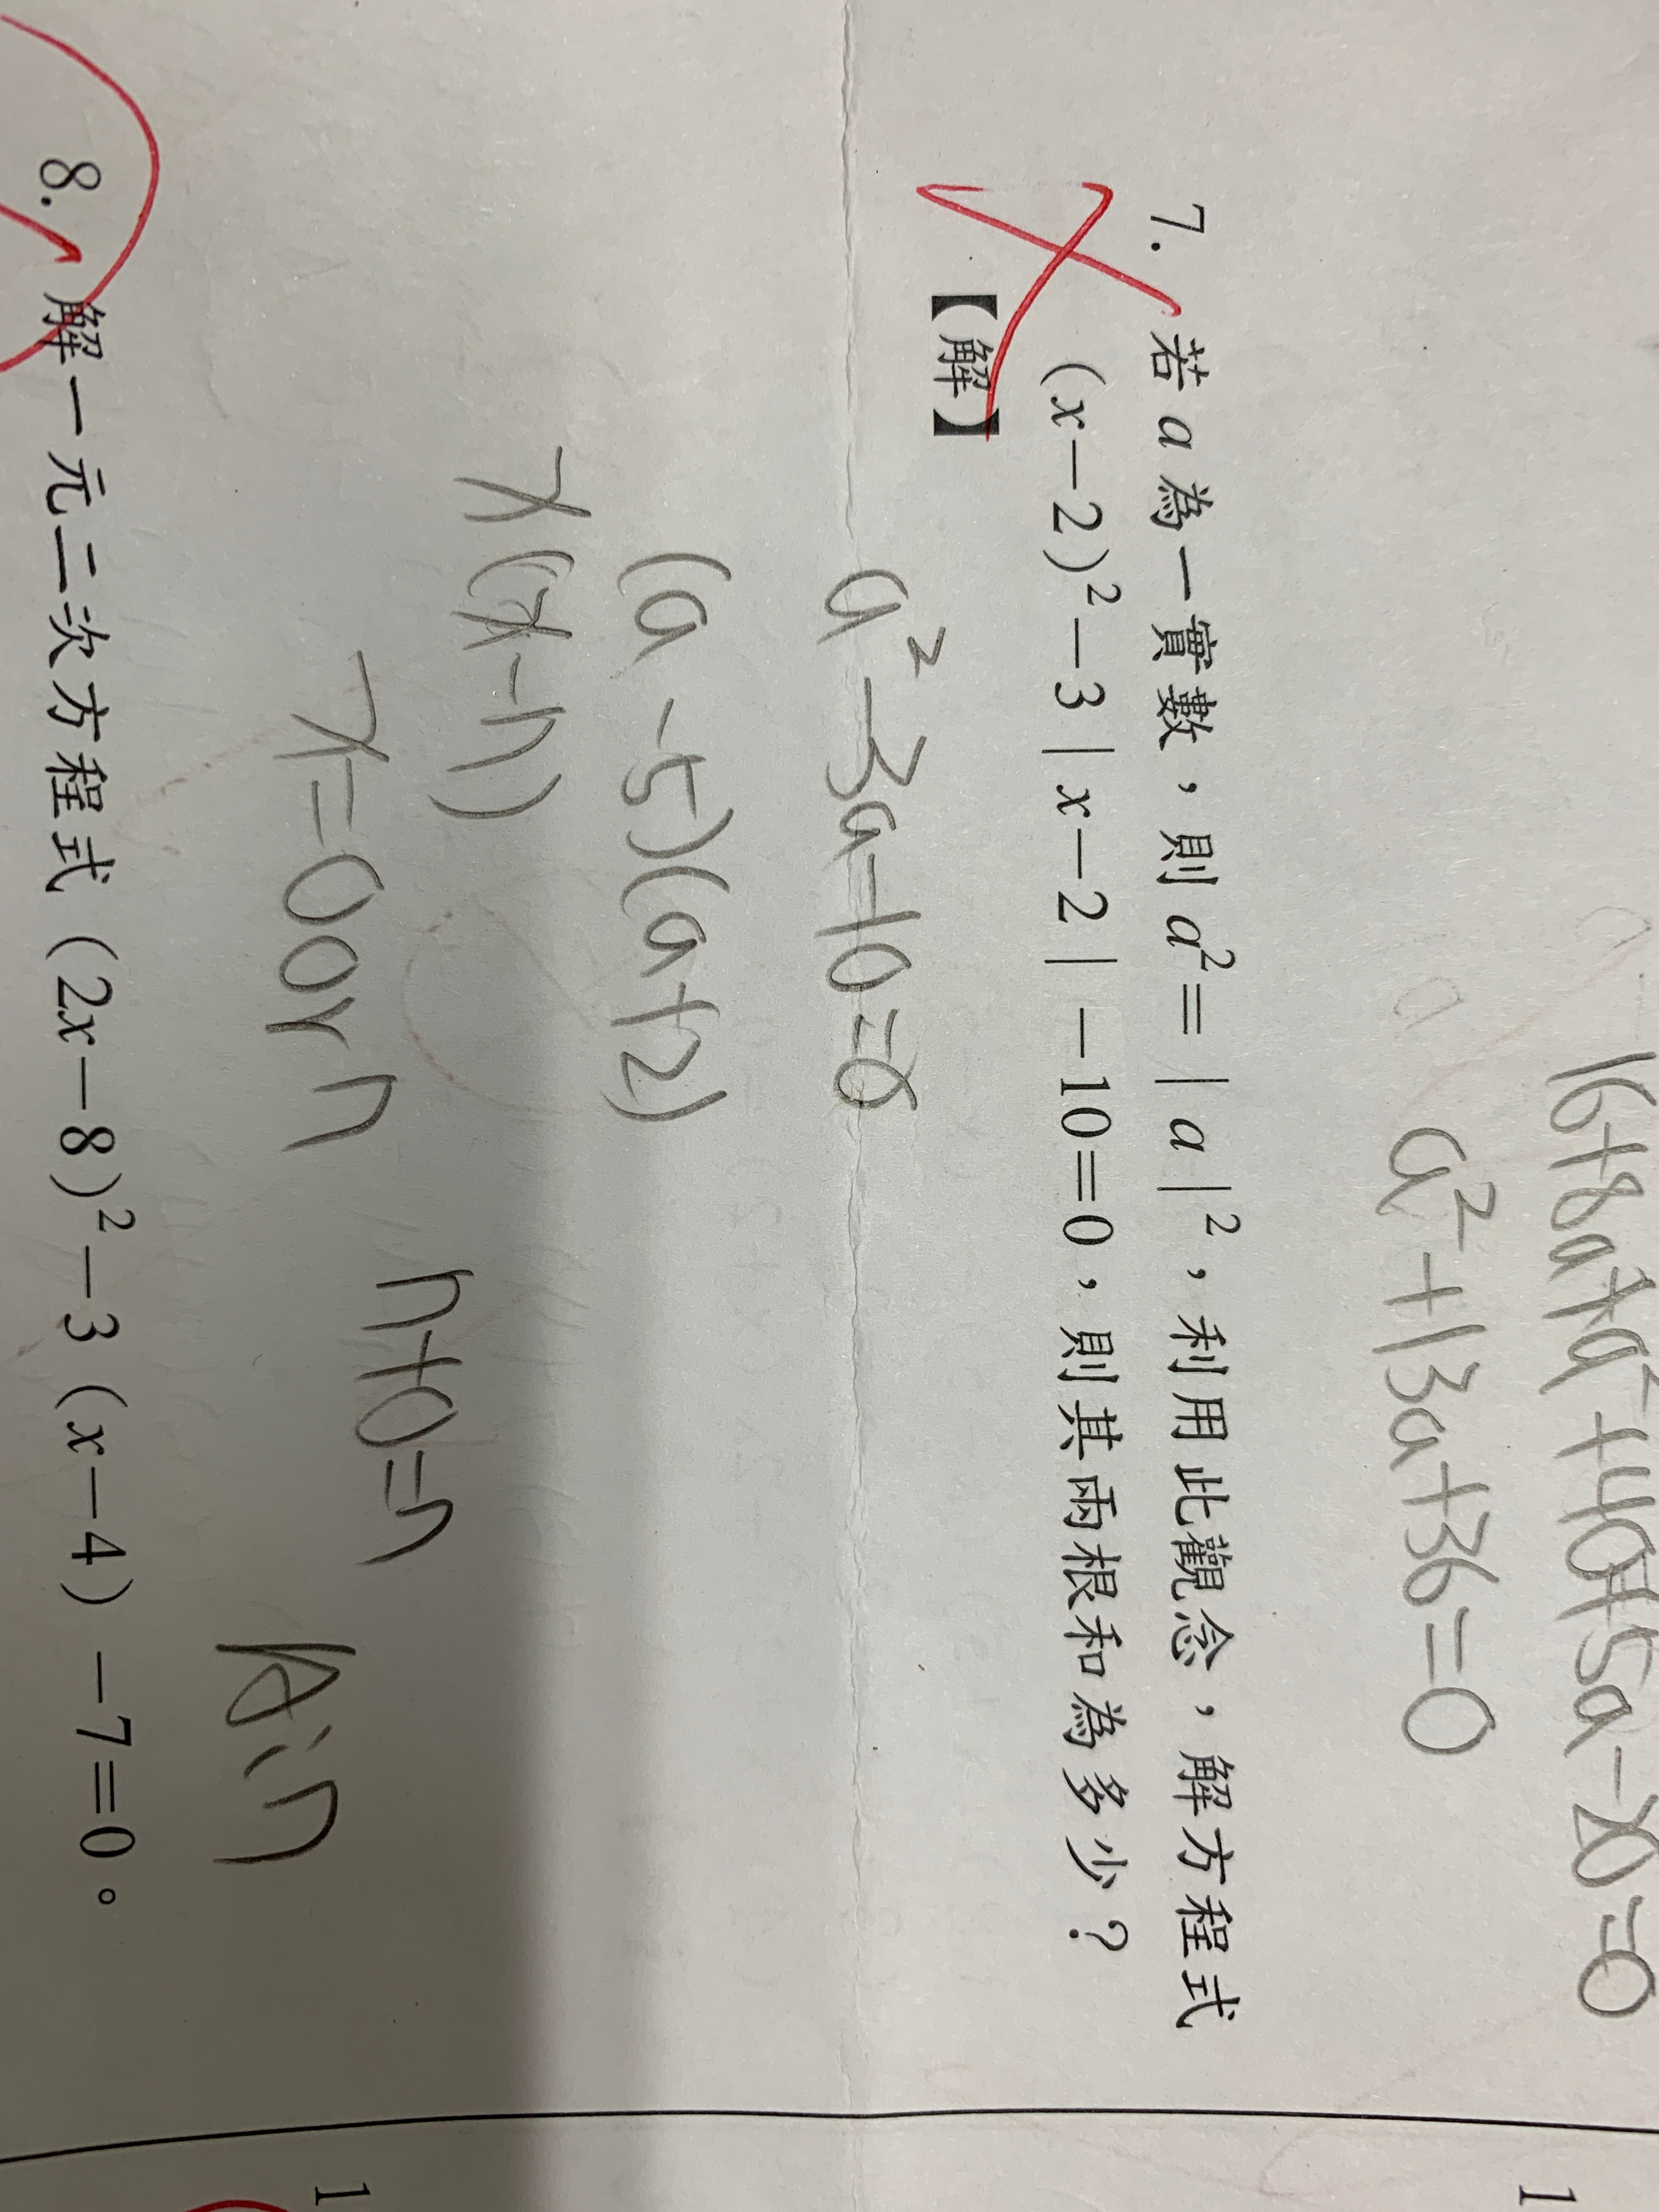 16+8a+a²+40+5a-20=0
a²+13a+36=0
7. 若a為一實數，則a²=|a|²，利用此觀念，解方程式
(x-2)²-3|x-2|-10=0，則其兩根和為多少？
【解】
a²-3a-10=0
(a-5)(a+2)
x(x-n)
n+0=n
x=0orn
A:n
8. 解一元二次方程式（2x-8)²-3（x-4）-7=0。
1
1